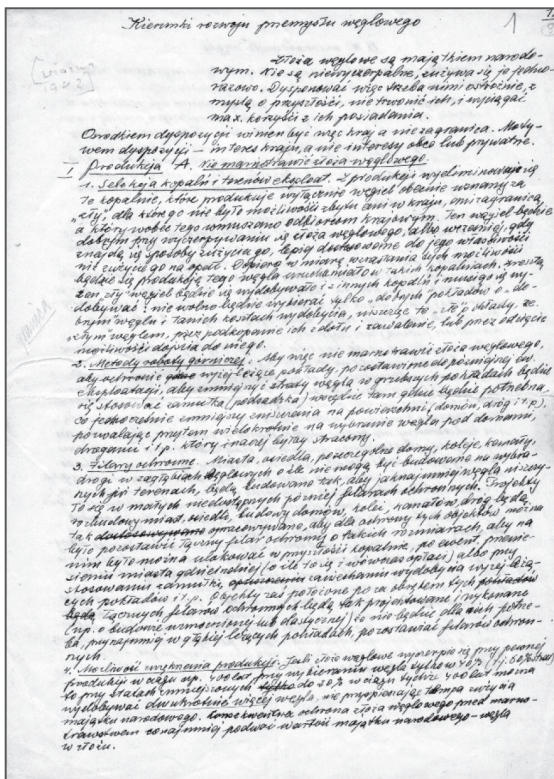 Kierunki rozwoju przemysłu węglowego
1
1.
Złoża węglowe są majątkiem narodo-
wym. Nie są niewyczerpalne, zużywa się je jedno-
razowo. Dysponować więc trzeba nimi ostrożnie, z
myślą o przyszłości, nie trwonić ich, i wyciągać
max. korzyści z ich posiadania.
Ośrodkiem dyspozycji winien być więc kraj a nie zagranica. Moty-
wem dyspozycji – interes kraju, a nie interesy obce lub prywatne.
I Produkcja A. Nie marnotrawić złoża węglowego.
1. Selekcja kopalń i terenów eksploat. Z produkcji wyeliminować
te kopalnie, które produkują wyłącznie węgiel obecnie uznany za
„zły”, dla którego nie było możliwości zbytu ani w kraju, ani zagranicą,
a który wobec tego wmuszano odbiorcom krajowym. Ten węgiel będzie
dobrym przy wyczerpywaniu się złoża węglowego, albo wcześniej, gdy
znajdą się sposoby zużycia go, lepiej dostosowane do jego własności
niż zużycie go na opał. Dopiero w miarę wzrastania tych możliwości
będzie się produkcję tego węgla uruchamiało w takich kopalniach. Zresztą
ten „zły” węgiel będzie się wydobywało i z innych kopalń i musi go się wy-
dobywać: nie wolno będzie wybierać tylko „dobrych” pokładów o „do-
brym” węglu i tanich kosztach wydobycia, niszcząc te „złe” pokłady, ze
„złym” węglem, przez podkopanie ich z dołu i zawalenie, lub przez odcięcie
możliwości dojścia do niego.
2. Metody roboty górniczej. Aby więc nie marnotrawić złoża węglowego,
aby ochronić wyżej leżące pokłady, pozostawione do późniejszej
eksploatacji, aby zmniejszyć straty węgla w grubszych pokładach będzie
się stosować zamułkę (podsadzkę) wszędzie tam gdzie będzie potrzebna,
co jednocześnie zmniejszy zniszczenia na powierzchni (domów, dróg i t.p.)
pozwalając przytem wielokrotnie na wybranie węgla pod domami,
drogami i t.p. który inaczej byłby stracony.
3. Filary ochronne. Miasta, osiedla, poszczególne domy, koleje, kanały,
drogi w zagłębiach węglowych o ile nie mogą być budowane na wybra-
nych już terenach, będą budowane tak, aby jaknajmniej węgla niszczy-
ło się w małych niedostępnych później filarach ochronnych. Projekty
rozbudowy miast, osiedli, budowy domów, kolei, kanałów, dróg będą
tak opracowywane, aby dla ochrony tych objektów można
było pozostawić łączny filar ochronny o takich rozmiarach, aby na
nim było można ulokować w przyszłości kopalnię, po ewent. przenie-
sieniu miasta gdzieindziej (o ile to się wówczas opłaci) albo przy
stosowaniu zamułki, zaniechaniu wydobycia wyżej leżą-
cych pokładów i t.p. Objekty zaś położone poza obrębem tych
łącznych filarów ochronnych będą tak projektowane i wykonane
(np. o budowie wzmocnionej lub elastycznej) że nie będzie dla nich potrze-
ba, przynajmniej w głębiej leżących pokładach, pozostawiać filarów ochron-
nych.
4. Możliwość zwiększenia produkcji. Jeśli złoże węglowe wyczerpie się przy pewnej
produkcji w ciągu np. 400 lat przy wybieraniu węgla tylko w 40% (tj. 60% strat)
to przy stratach zmniejszonych do 20% w ciągu tychże 400 lat można
wydobywać dwukrotnie więcej węgla, nie przyspieszając tempa zużycia
majątku narodowego. Konsekwentna ochrona złoża węglowego przed marno-
trawstwem conajmniej podwoi wartość majątku narodowego – węgla
w złożu.